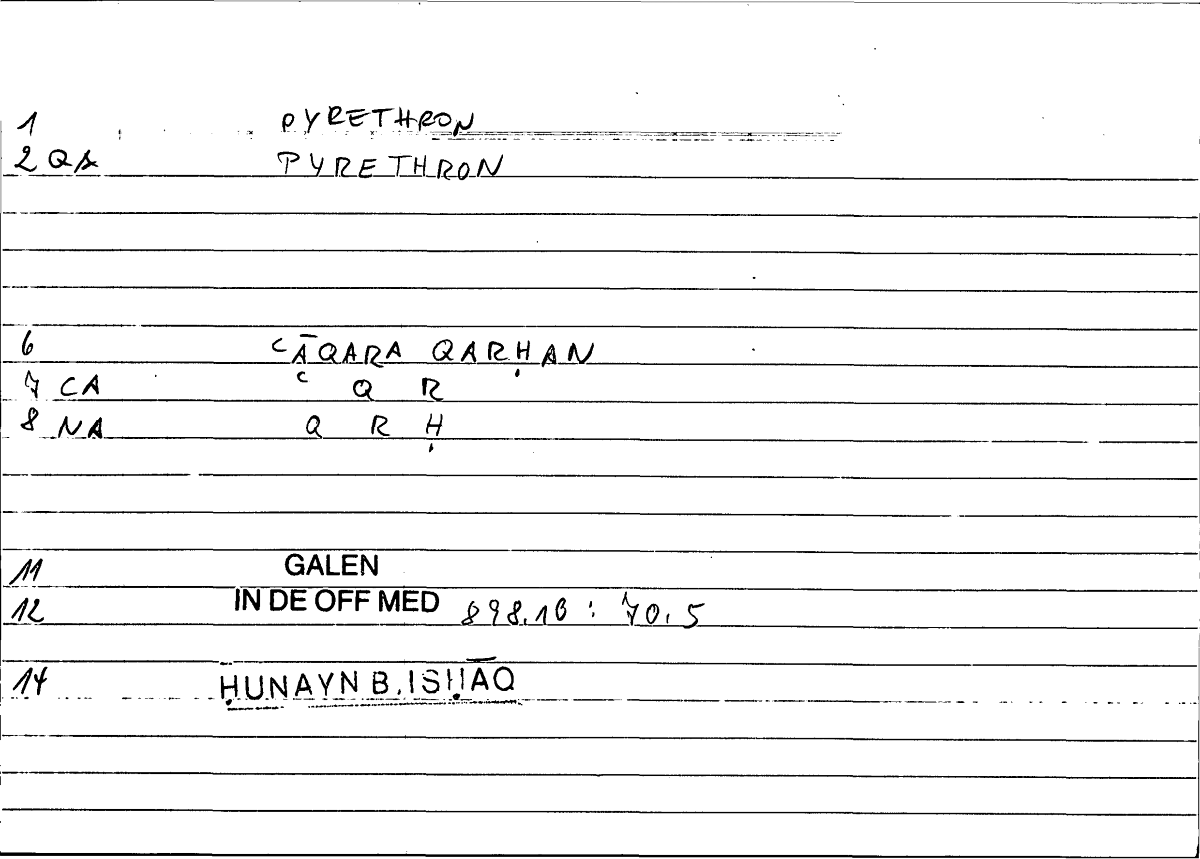 1 PYRETHRON
2 QA PYRETHRON
6 ʿĀQARA QARḤAN
7 CA ʿ Q R
8 NA Q R Ḥ
11 GALEN
12 IN DE OFF MED 898.16 : 70.5
14 ḤUNAYN B. ISḤĀQ